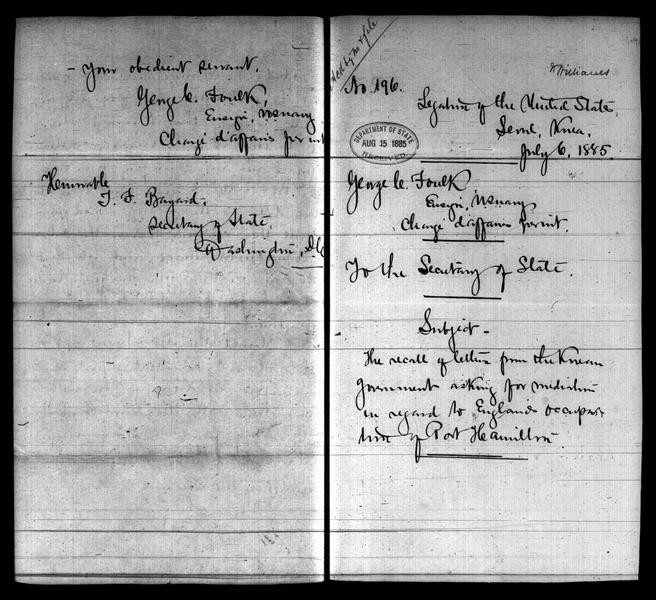 - Your obedient servant,
George C. Foulk,
Ensign, U.S. Navy
Chargé d'affaires per int
Honorable
T. F. Bayard,
Secretary of State,
Washington, D.C.
No. 196.
Legation of the United States
Seoul, Korea,
July 6, 1885.
DEPARTMENT OF STATE
AUG 15 1885
RECEIVED
George C. Foulk
Ensign, U.S. Navy
Chargé d'affaires per int.
To the Secretary of State.
Subject -
The recall of letter from the Korean
Government asking for mediation
in regard to England's occupa-
tion of Port Hamilton